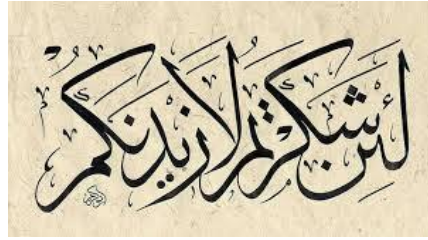 لَئِن شَكَرْتُمْ لَأَزِيدَنَّكُمْ